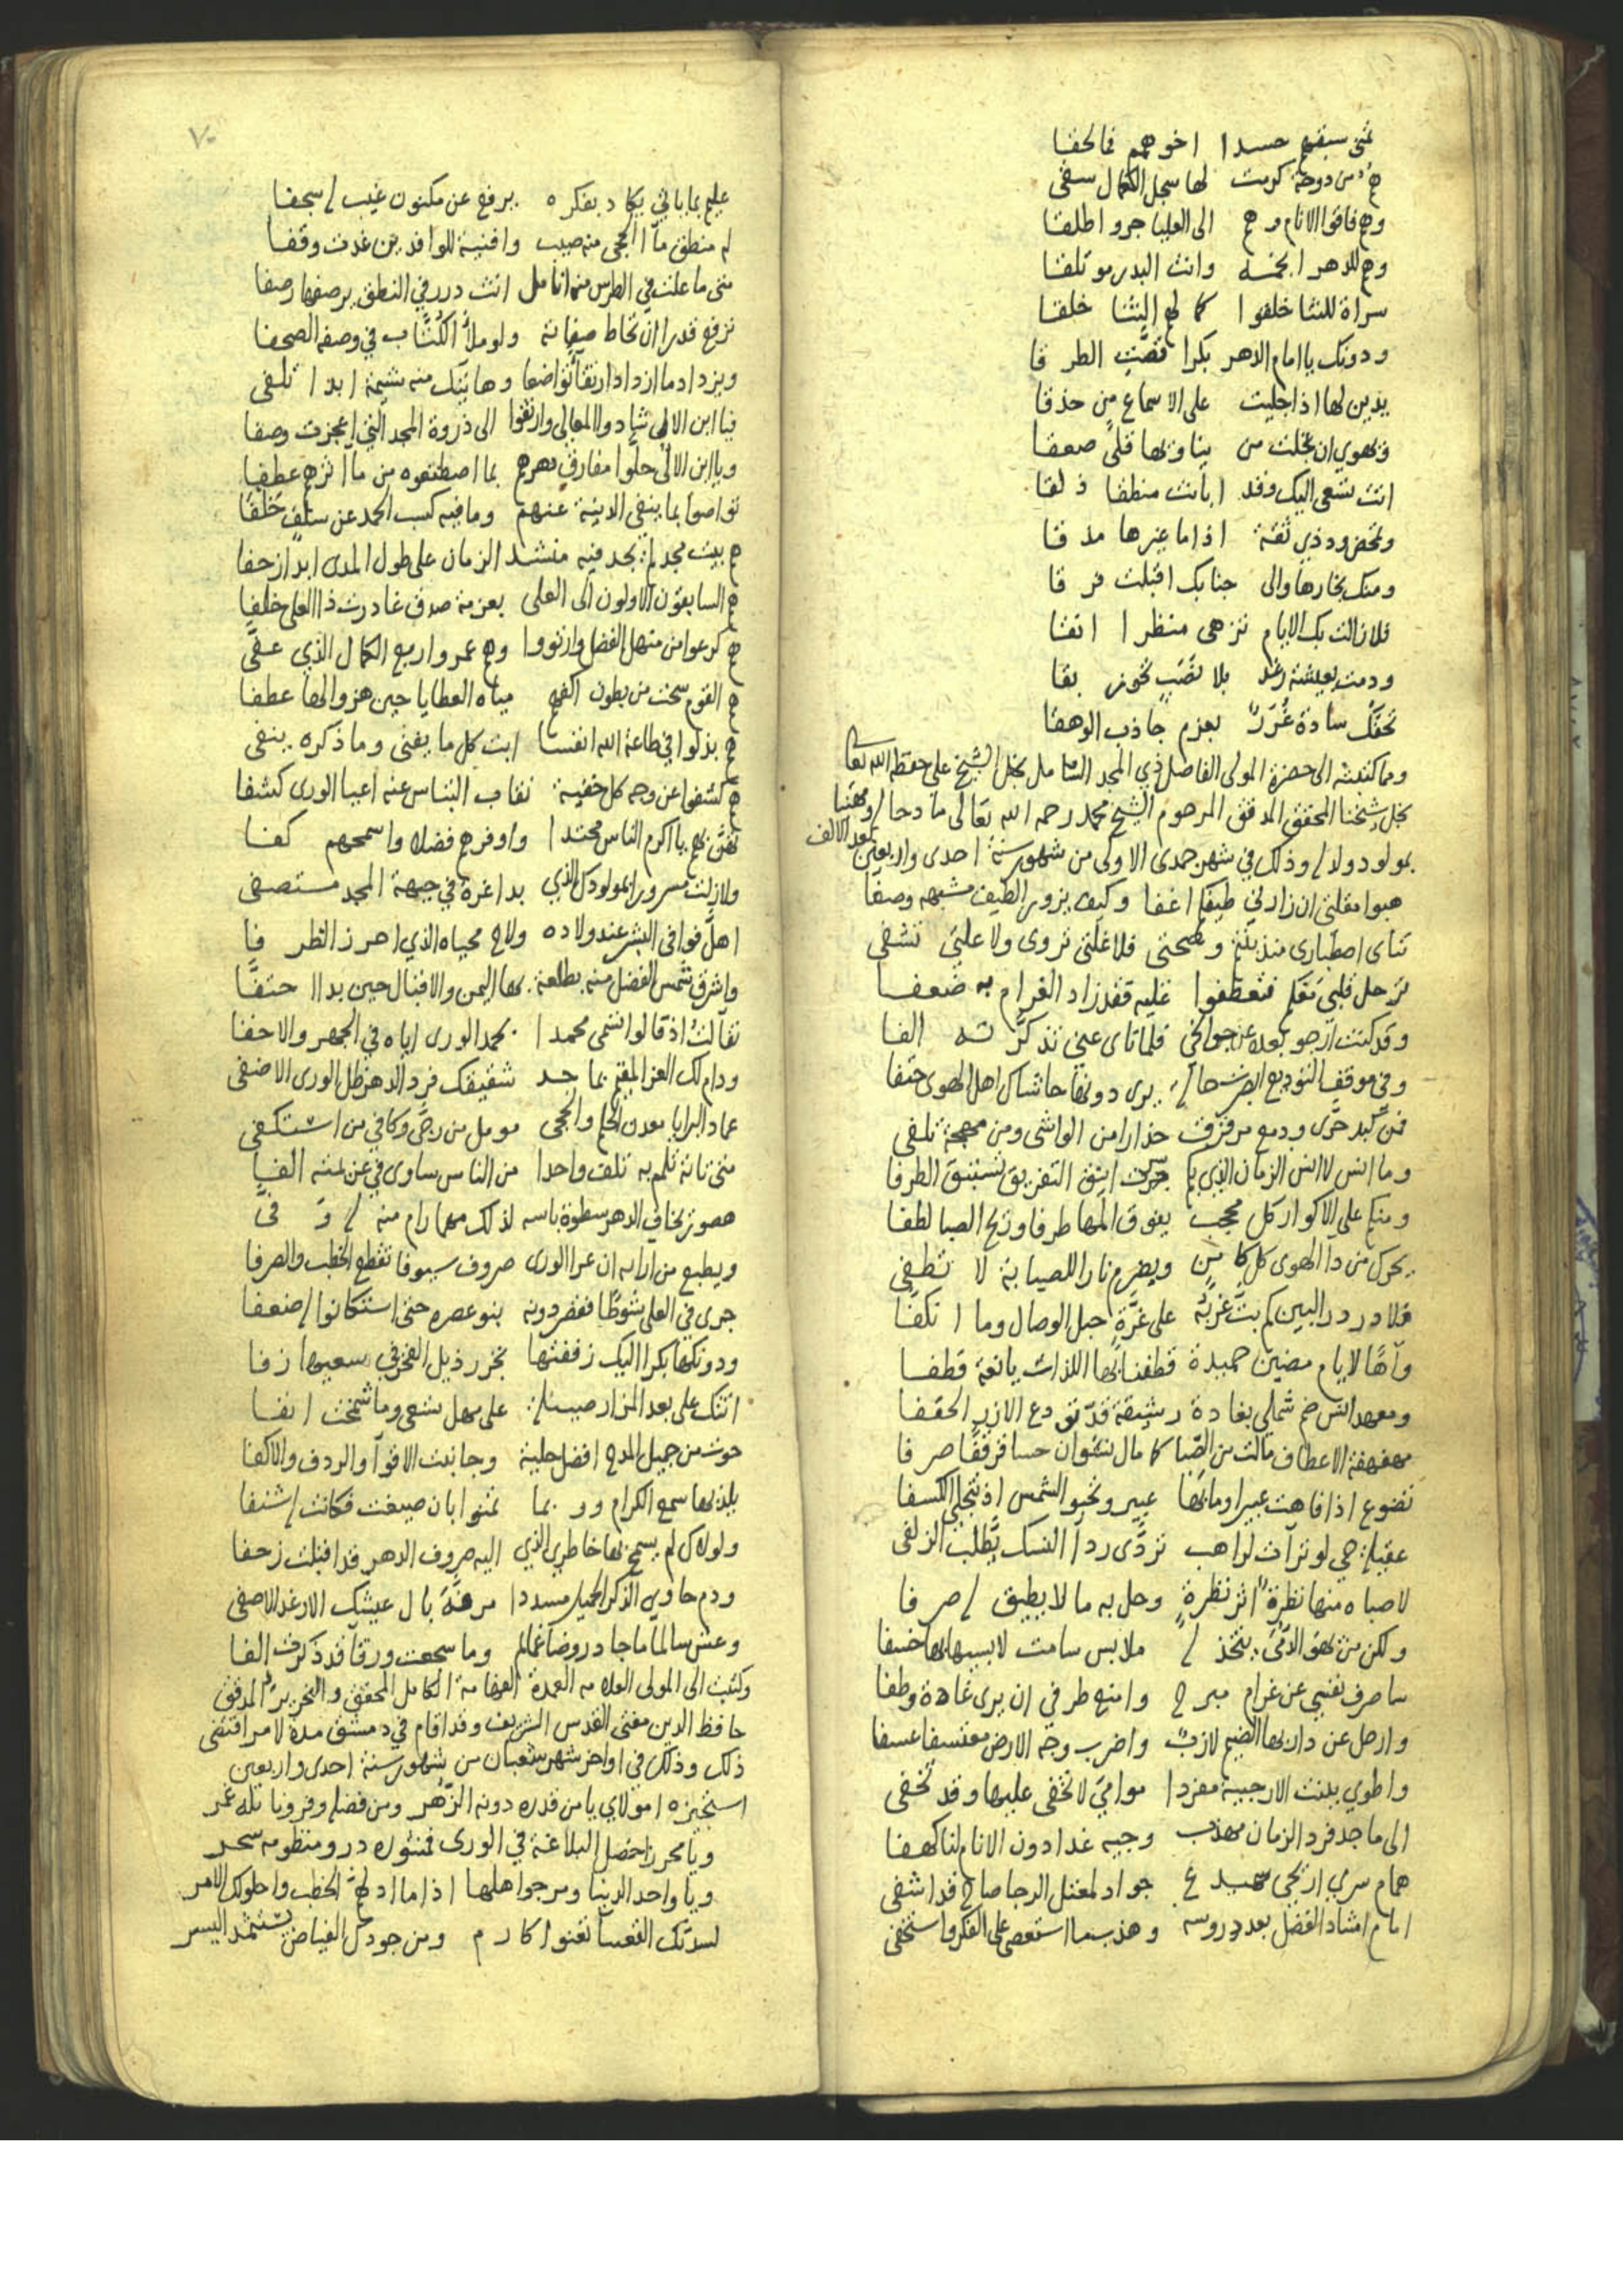 تمنى سبقهم حسدا اخوهم فما لحقا
هم من دوحة كرمت لها سجل الكمال سقى
وهم فاقوا الانام وهم الى العليا جروا طلقا
وهم للدهر انجمه وانت البدر مؤتلقا
سراة للثنا خلقوا كما لهم الثنا خلقا
ودونك يا امام الدهر بكرا قصت الطرقا
يدين لها اذا جليت على الاسماع من حذقا
اتت تسعى اليك وقد ابانت منطقا ذلقا
وتمحض ود ذي ثقة اذا ما غيرها مذقا
ومنك بخارها والى جنابك اقبلت فرقا
فلا زالت بك الايام تزهى منظرا انقا
ودمت بعيشة رغد بلا نصب تحوز بقا
تحفك سادة غرر بعزم جاذب الوهقا
ومما كتبته الى حضرة المولى الفاضل ذي المجد الشامل نجل الشيخ علي حفظه الله تعالى
نجل شيخنا المحقق المدقق المرحوم الشيخ محمد رحمه الله تعالى مادحا له ومهنيا
بمولود ولد له وذلك في شهر جمدى الاولى من شهور سنة احدى واربعين بعد الالف
هبوا مقلتي ان زارني طيفكم اغفا وكيف يزور الطيف مشبهه وصفا
تناى اصطباري منذ بنتم وصحتي فلا غلتي تروى ولا علتي تشفى
ترحل قلبي معكم فتعطفوا عليه فقد زاد الغرام به ضعفا
وقد كنت ارجو بعده عن جوانحي فلما تناى عني تذكرته الفا
وفي موقف التوديع ابصرت حالة يرى دونها حاشاك اهل الهوى حتفا
فمن كبد حرى ودمع مرقرق حذارا من الواشي ومن مهجة تلفى
وما انس لا انس الزمان الذي بكم جرت اينق التفريق تستبق الطرفا
ومنكم على الاكوار كل محجب يفوق المها طرفا وريح الصبا لطفا
يحرك من دا الهوى كل كامن ويضرم نارا للصبابة لا تطفى
فلا در در البين كم بت غربه على غرة حبل الوصال وما انكفا
وآها لايام مضين حميدة قطفنا بها اللذات يانعة قطفا
ومعهد انس ضم شملي بغادة رشيقة قد تودع الازر الحقفا
مهفهفة الاعطاف مالت من الصبا كما مال نشوان حسا قرقفا صرفا
تضوع اذا فاهت عبيرا وما بها عبير وتخبو الشمس اذ تجلى الكسفا
عقيلة حي لو تراآت لراهب تردى ردآ النسك يطلب الزلفى
لاصباه منها نظرة اثر نظرة وحل به ما لا يطيق له صرفا
ساصرف نفسي عن غرام مبرح وامنع طرفي ان يرى غادة وطفا
وارحل عن دار بها الضيم لازب واضرب وجه الارض معتسفا عسفا
واطوي بلنت الارحبية مفردا موامي لا تخفى عليها وقد تخفى
الى ماجد فرد الزمان مهذب وجيه غدا دون الانام لنا كهفا
همام سري اريحي سميدع جواد لمعتل الرجا صالح قد اشفى
امام اشاد الفضل بعد دروسه وهذب ما استعصى على الفكر واستخفى
٧٠
عليم بما ياتي يكاد بفكره يرفع عن مكنون غيب له سجفا
له منطق مآ الحجى منه صيب وافنية للوافدين غدت وقفا
متى ما علت في الطرس منه انامل اتت درر في النطق يرصفها رصفا
ترفع قدرا ان تحاط صفاته ولو ملأ الكتاب في وصفه الصحفا
ويزداد ما ازداد ارتقآ تواضعا وهاتيك منه شيمة ابدا تلفى
فيا ابن الالى شادوا المعالي وارتقوا الى ذروة المجد التي اعجزت وصفا
ويا ابن الالى حلوا مفارق دهرهم بما اصطنعوه من مآثرهم عطفا
تواصوا بما ينفي الدنية عنهم وما فيه كسب الحمد عن سلف خلفا
هم السابقون الاولون الى العلى بعزمة صدق غادرت ذا العلى خلفا
هم كرعوا من منهل الفضل وارتووا وهم عمروا ربع الكمال الذي عفى
هم القوم سحت من بطون اكفهم مياه العطايا حين هزوا لها عطفا
هم بذلوا في طاعة الله انفسا ابت كل ما يفنى وما ذكره ينفى
هم كشفوا عن وجه كل خفية نقاب التباس عنه اعيا الورى كشفا
تهن بهم يا اكرم الناس محتدا واوفرهم فضلا واسمحهم كفا
ولا زلت مسرورا بمولودك الذي بدا غرة في جبهة المجد مستصفى
اهل فوافى البشر عند ولاده ولاح محياه الذي احرز الظرفا
واشرق شمس الفضل منه بطلعة بها اليمن والاقبال حين بدا احتفا
تفآلت اذ قالوا تسمى محمدا بحمد الورى اياه في الجهر والاخفا
ودام لك العز المقيم بماجد شقيقك فرد الدهر ظل الورى الاضفى
عماد البرايا معدن الحلم والحجى مومل من رجى وكافي من استكفى
متى تاته تلمم به تلف واحدا من الناس ساوى في عزيمته الفا
هصور يخاف الدهر سطوة باسه لذلك مهما رام منه له وفى
ويطبع من ارايه ان عرا الورى صروف سيوفا تقطع الخطب والصرفا
جرى في العلى شوطا فقصر دونه بنو عصره حتى استكانوا له ضعفا
ودونكها بكرا اليك زففتها تجرر ذيل الفخر في سعيها زفا
اتتك على بعد المزار صبيلة على مهل تسعى وما شمخت انفا
حوت من جميل المدح افضل حلية وجانبت الاقوآ والردف والاكفا
يلذ بها سمع الكرام وربما تمنوا بان صيغت فكانت له شنفا
ولولاك لم يسمح بها خاطري الذي اليه صروف الدهر قد اقبلت زحفا
ودم حاوي الذكر الجميل مسددا مرفه بال عيشك الارغد الاصفى
وعش سالما ما جاد روضا غمايم وما سجعت ورقا قد ذكرت الفا
وكتبت الى المولى العلامه العمدة الفهامة الكامل المحقق والنحرير المدقق
حافظ الدين مفتى القدس الشريف وقد اقام في دمشق مدة لامر اقتضى
ذلك وذلك في اواخر شهر شعبان من شهور سنة احدى واربعين
امولاي يا من قدره دونه الزهر ومن فضله وفر ونايله غمر
ويا محرزا خصل البلاغة في الورى فمنثوره در ومنظومه سحر
ويا واحد الدنيا ومرجو اهلها اذا ما ادلهم الخطب واحلولك الامر
لسدتك القعسا تعنو اكارم ومن جودك الفياض يستمد اليسر